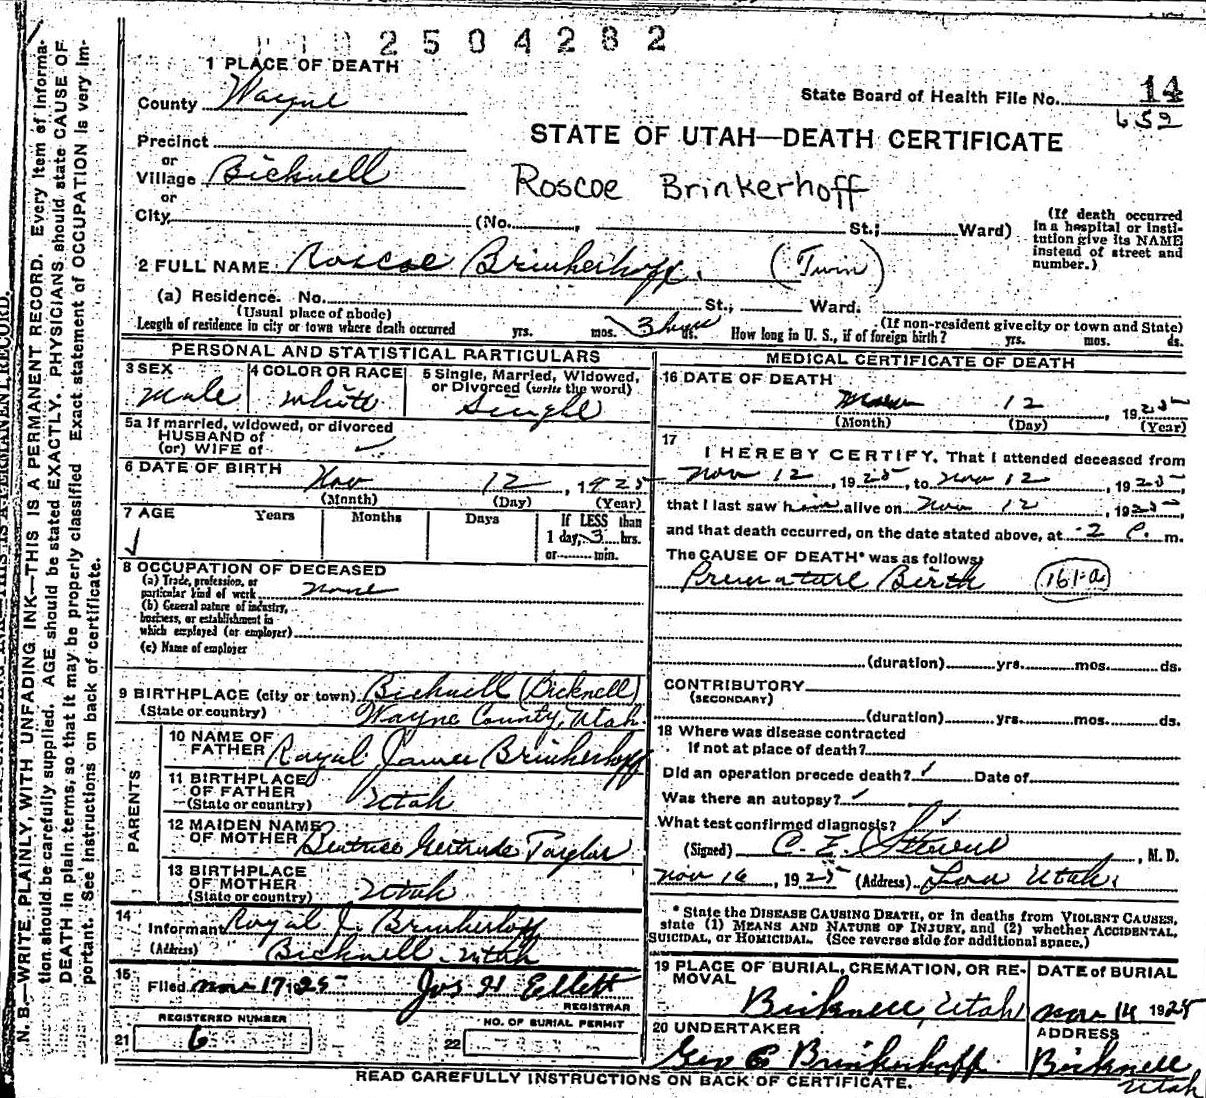 2504282
1 PLACE OF DEATH
County Wayne
State Board of Health File No. 14
652
STATE OF UTAH—DEATH CERTIFICATE
Precinct
or
Village Bicknell
Roscoe Brinkerhoff
or
City (No. , St.; Ward)
(If death occurred in a hospital or institution give its NAME instead of street and number.)
2 FULL NAME Roscoe Brinkerhoff. (Twin)
(a) Residence. No. St., Ward.
(Usual place of abode)
(If non-resident give city or town and State)
Length of residence in city or town where death occurred yrs. mos. 3 hrs ds. How long in U. S., if of foreign birth? yrs. mos. ds.
PERSONAL AND STATISTICAL PARTICULARS
3 SEX
Male
4 COLOR OR RACE
White
5 Single, Married, Widowed, or Divorced (write the word)
Single
5a If married, widowed, or divorced
HUSBAND of
(or) WIFE of
6 DATE OF BIRTH Nov 12, 1925
(Month) (Day) (Year)
7 AGE Years Months Days If LESS than
1 day, 3 hrs.
or min.
8 OCCUPATION OF DECEASED
(a) Trade, profession, or
particular kind of work none
(b) General nature of industry,
business, or establishment in
which employed (or employer)
(c) Name of employer
9 BIRTHPLACE (city or town) Bicknell (Bicknell)
(State or country) Wayne County, Utah.
PARENTS
10 NAME OF
FATHER Royal James Brinkerhoff
11 BIRTHPLACE
OF FATHER
(State or country) Utah
12 MAIDEN NAME
OF MOTHER Beatrice Gertrude Taylor
13 BIRTHPLACE
OF MOTHER
(State or country) Utah
14
Informant Royal J. Brinkerhoff
(Address) Bicknell Utah
15
Filed Nov 17 25 Jos H Ellett
REGISTRAR
REGISTERED NUMBER
21 6
NO. OF BURIAL PERMIT
22
MEDICAL CERTIFICATE OF DEATH
16 DATE OF DEATH
Nov 12, 1925
(Month) (Day) (Year)
17
I HEREBY CERTIFY, That I attended deceased from
Nov 12, 1925, to Nov 12, 1925,
that I last saw him alive on Nov 12, 1925,
and that death occurred, on the date stated above, at 2 P. m.
The CAUSE OF DEATH* was as follows:
Premature Birth (161-a)
(duration) yrs. mos. ds.
CONTRIBUTORY
(SECONDARY)
(duration) yrs. mos. ds.
18 Where was disease contracted
If not at place of death?
Did an operation precede death? Date of
Was there an autopsy?
What test confirmed diagnosis?
(Signed) C. E. , M. D.
Nov 16, 1925 (Address) Loa Utah.
* State the DISEASE CAUSING DEATH, or in deaths from VIOLENT CAUSES,
state (1) MEANS AND NATURE OF INJURY, and (2) whether ACCIDENTAL,
SUICIDAL, or HOMICIDAL. (See reverse side for additional space.)
19 PLACE OF BURIAL, CREMATION, OR REMOVAL
Bicknell, Utah
DATE of BURIAL
Nov 14 1925
20 UNDERTAKER
Geo C Brinkerhoff
ADDRESS
Bicknell
Utah
READ CAREFULLY INSTRUCTIONS ON BACK OF CERTIFICATE.
N. B.—WRITE PLAINLY, WITH UNFADING INK—THIS IS A PERMANENT RECORD. Every item of informa-
tion should be carefully supplied. AGE should be stated EXACTLY. PHYSICIANS should state CAUSE OF
DEATH in plain terms, so that it may be properly classified. Exact statement of OCCUPATION is very im-
portant. See instructions on back of certificate.